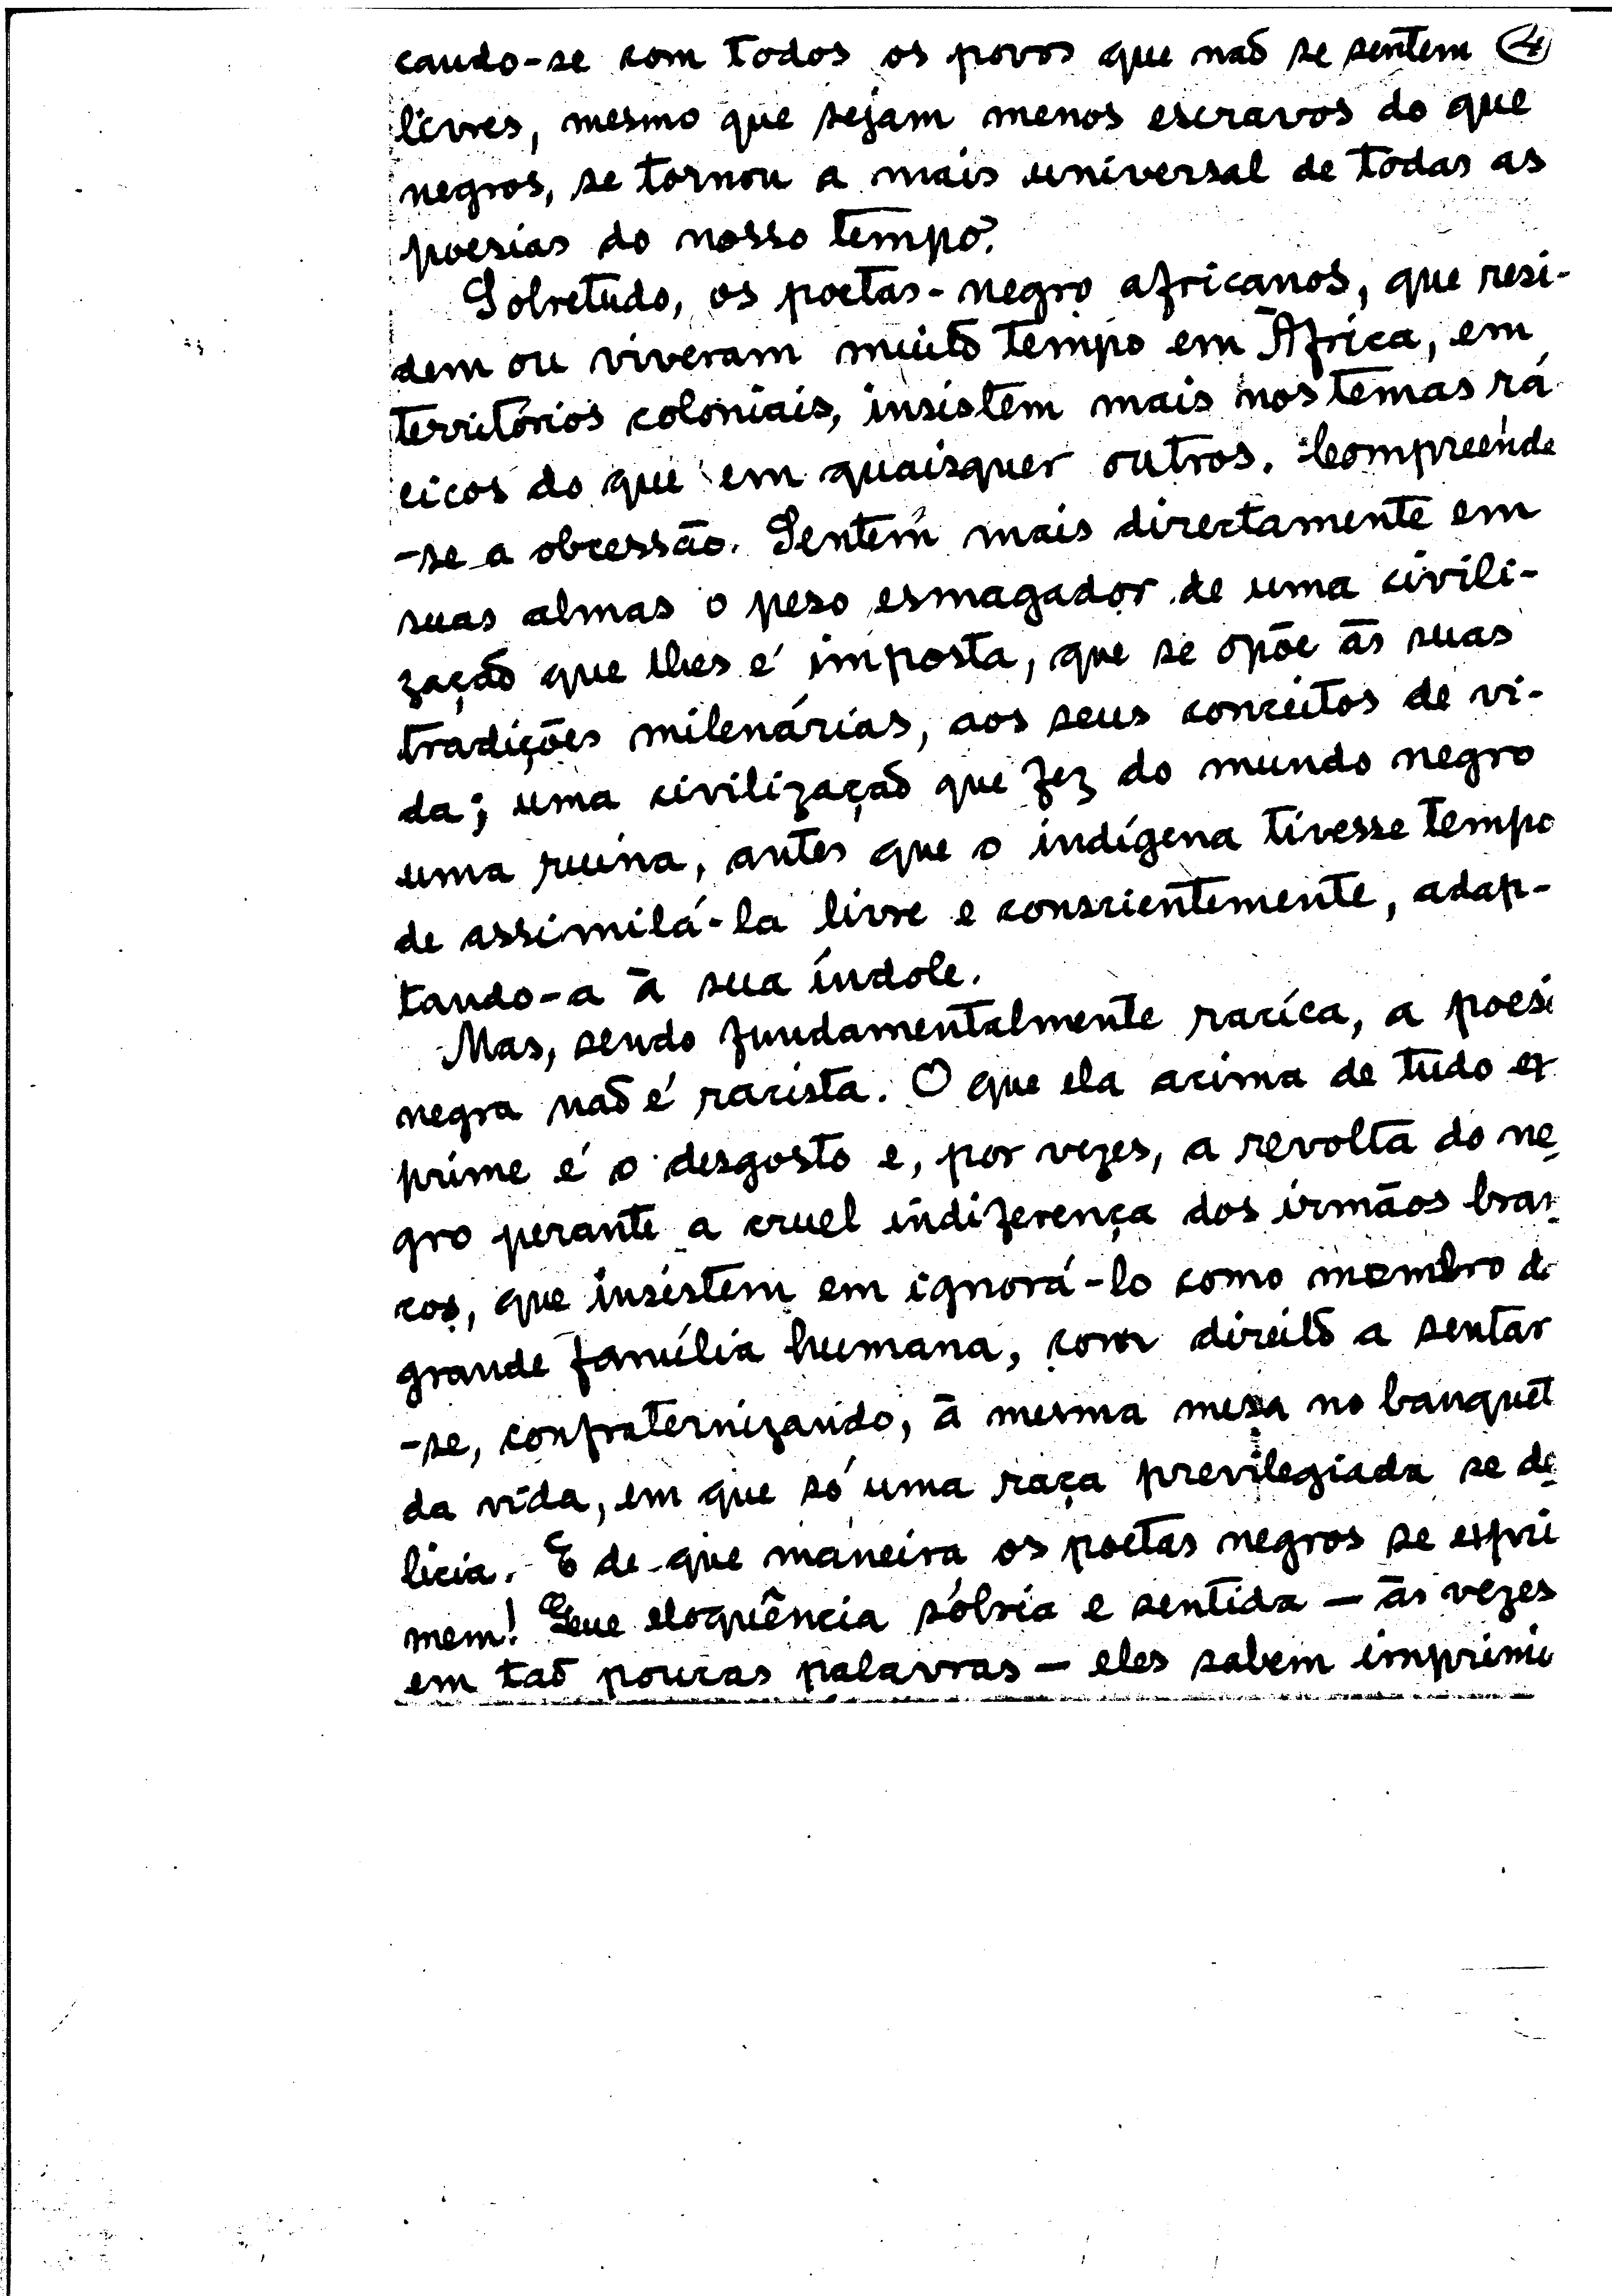 cando-se com todos os povos que não se sentem 4
livres, mesmo que sejam menos escravos do que
negros, se tornou a mais universal de todas as
poesias do nosso tempo?
Sobretudo, os poetas-negro africanos, que resi-
dem ou viveram muito tempo em África, em
territórios coloniais, insistem mais nos temas rá
cicos do que em quaisquer outros. Compreende
-se a obcessão. Sentem mais directamente em
suas almas o peso esmagador de uma civili-
zação que lhes é imposta, que se opõe às suas
tradições milenárias, aos seus conceitos de vi-
da; uma civilização que fez do mundo negro
uma ruina, antes que o indígena tivesse tempo
de assimilá-la livre e conscientemente, adap-
tando-a à sua índole.
Mas, sendo fundamentalmente racica, a poesi
negra não é racista. O que ela acima de tudo ex
prime é o desgosto e, por vezes, a revolta do ne
gro perante a cruel indiferença dos irmãos bran
cos, que insistem em ignorá-lo como membro d
grande família humana, com direito a sentar
-se, confraternizando, à mesma mesa no banquet
da vida, em que só uma raça previlegiada se de
licia. E de que maneira os poetas negros se expri
mem! Que eloquência sóbria e sentida — às vezes
em tão poucas palavras — eles sabem imprimi